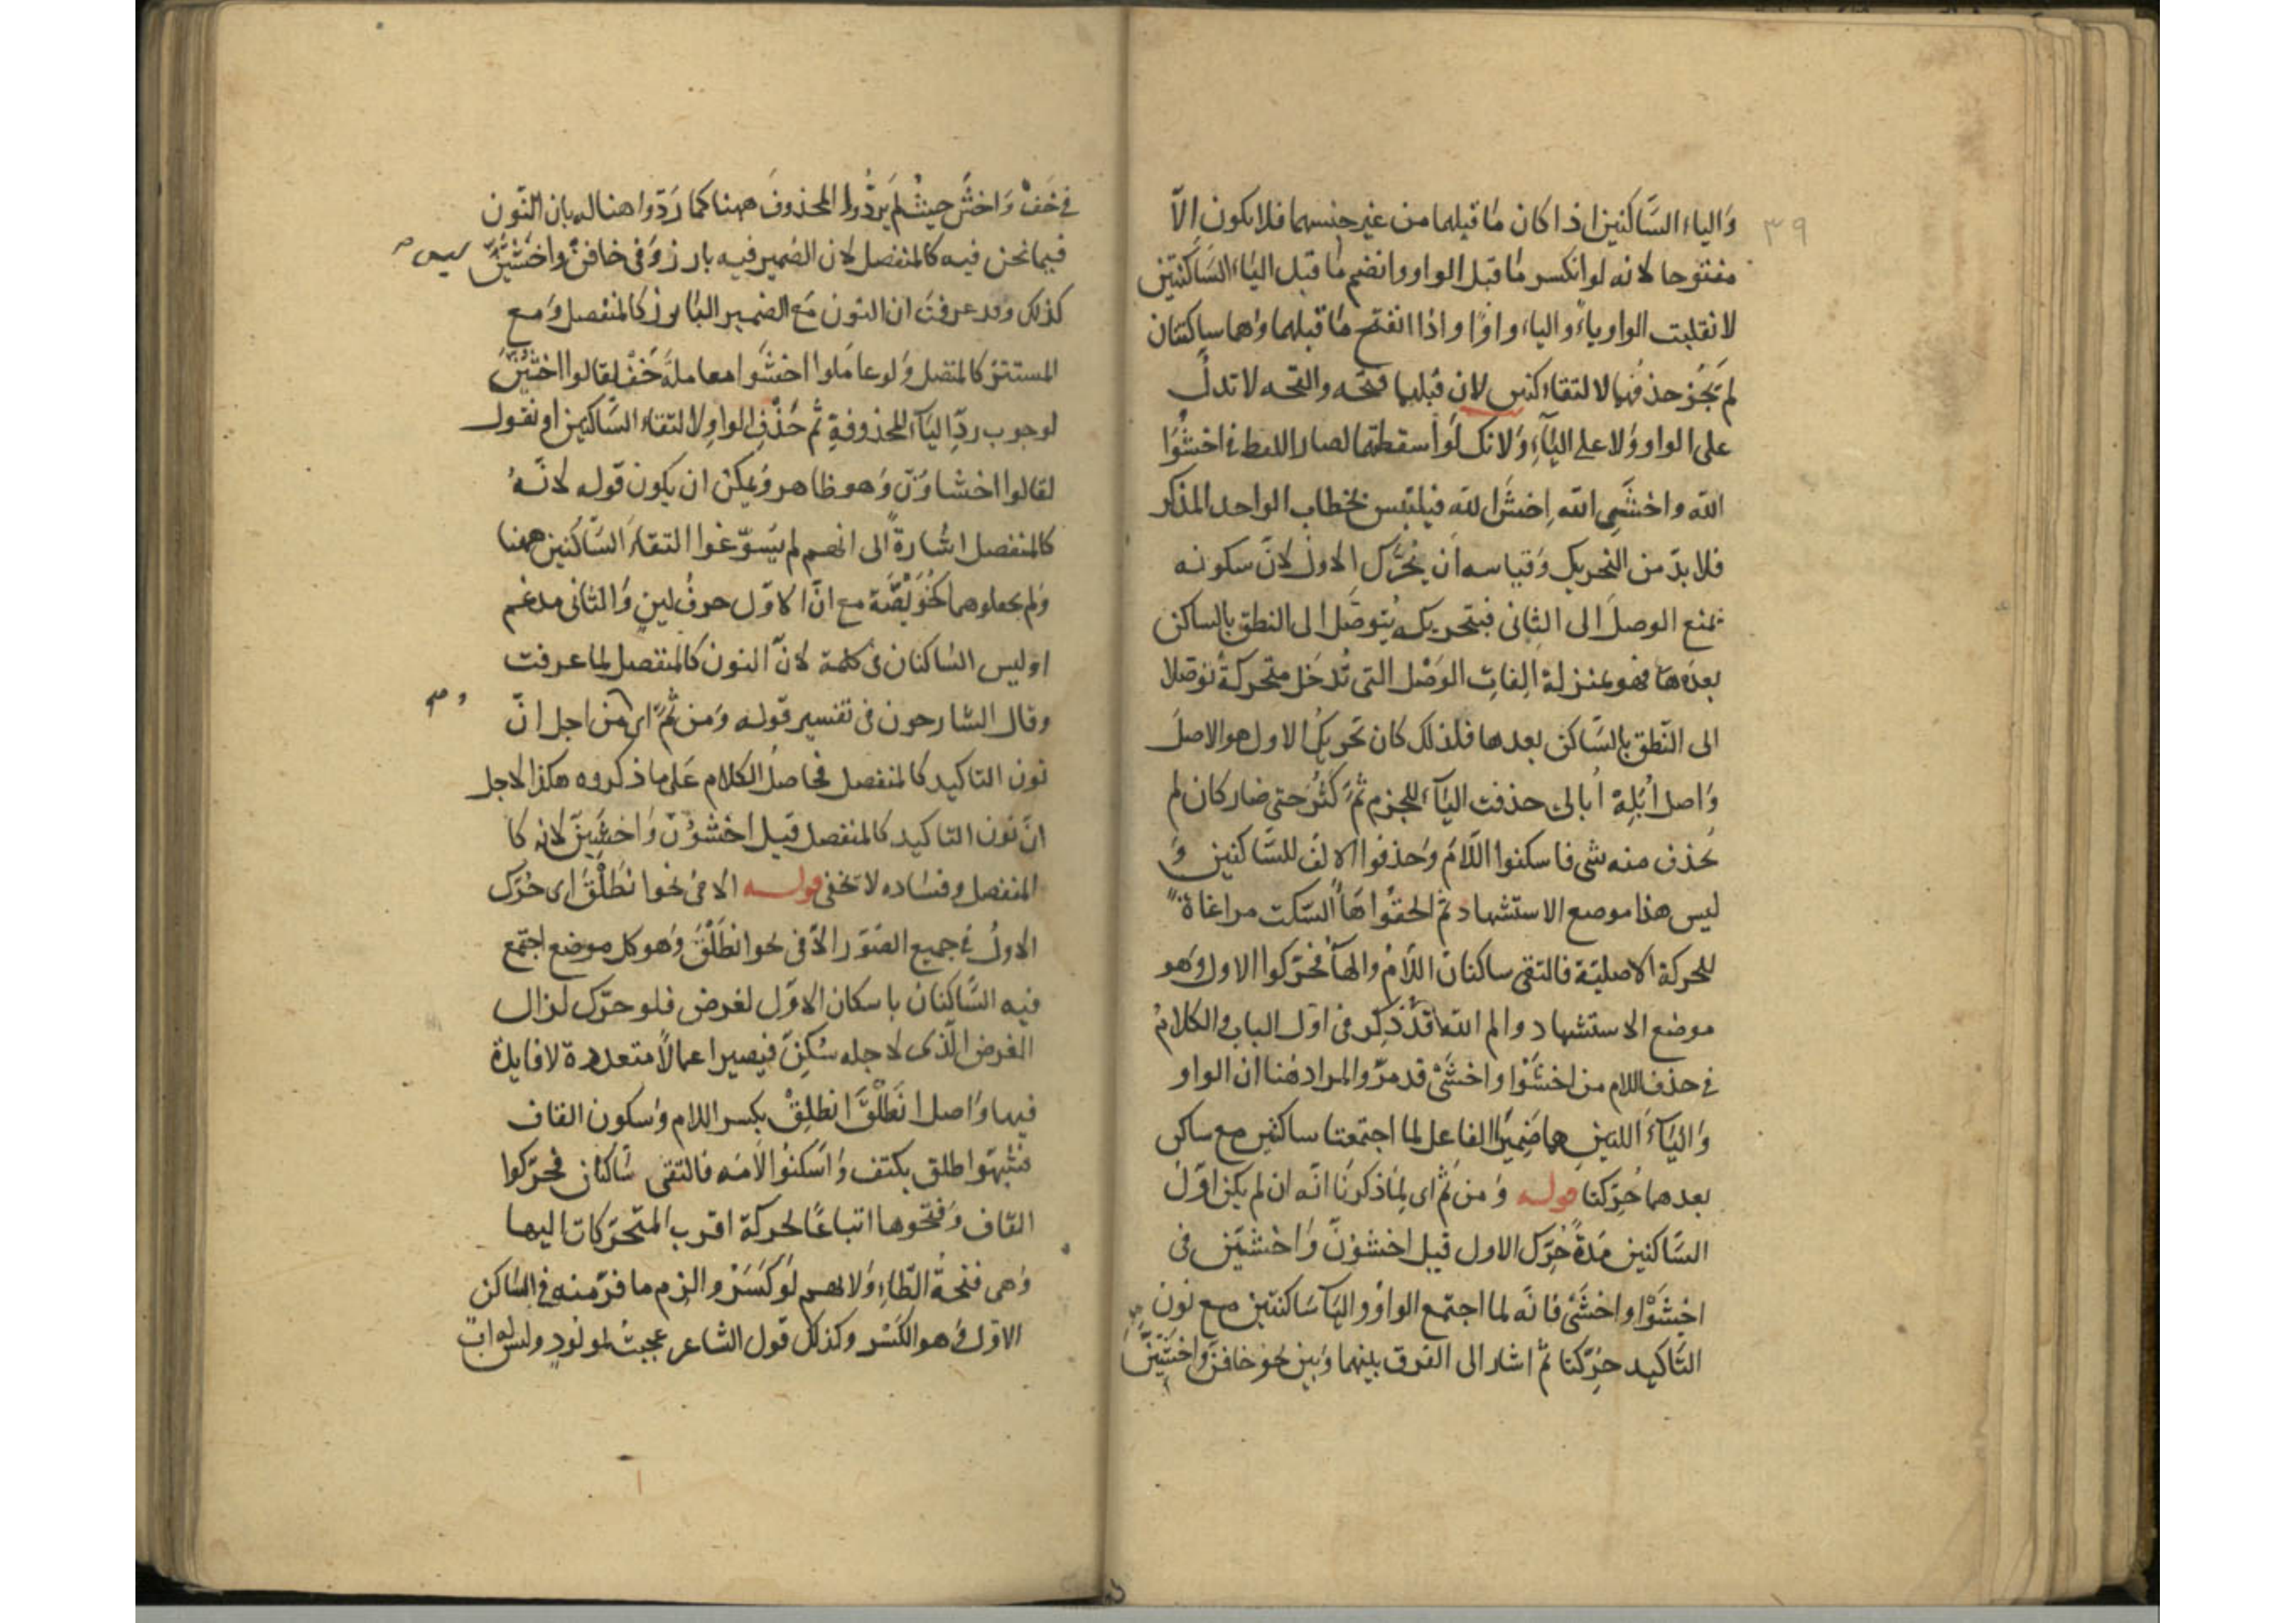 ٣٩
والياء الساكنين اذا كان ما قبلهما من غير جنسهما فلا يكون الّا
مفتوحا لانه لو انكسر ما قبل الواو وانضم ما قبل الياء الساكنتين
لانقلبت الواو ياءً والياء واوًا واذا انفتح ما قبلهما وهما ساكنتان
لم يَجُز حذفهما لالتقاء كنين لان قبلهما فتحه والفتحه لا تدلّ
على الواو ولا على الياءِ ولانك لو اسقطتهما لصار اللفظ في اخشوُا
الله واخشَيِ الله اِخشَ الله فيلتبس بخطاب الواحد المذكر
فلا بدّ من التحريك وقياسه أن يُحَرَّك الاول لانّ سكونه
يمنع الوصل الى الثاني فبتحريكه يُتوصَّل الى النطق بالساكن
بعدها فهو بمنزلة الِفاتِ الوَصْل التي تُدخَل متحركةً توصّلا
الى النّطق بالسّاكن بعدها فلذلك كان تحريك الاول هو الاصلَ
واصل اُبَلِهْ اُبالى حذفت الياء للجزم ثمّ كثُر حتى صار كان لم
يُحذف منه شي فاسكنوا اللّامَ وحذفوا الالف للسّاكنين و
ليس هذا موضع الاستشهاد ثم الحقوا هاً السّكت مراعاة
للحركة الاصليّة فالتقى ساكنان اللّامُ والهاءُ فحرّكوا الاول وهو
موضع الاستشهاد والم الله قد ذُكِر في اوّل الباب والكلامُ
في حذف اللام من اخشَوْا واخشَيْ قد مرّ والمراد هنا ان الواو
والياءَ اللتين هما ضميرا الفاعل لما اجتمعتا ساكنتين مع ساكن
بعدهما حُرّكتا قوله ومن ثَمّ اى لِمَا ذكرنا انّه ان لم يكن اوّل
السّاكنين مَدّةً حُرّك الاول قيل اخشَوُنَّ واخشَيِنّ في
اخشَوْا واخشَيْ فانّه لما اجتمع الواو والياء ساكنتين مع نون
التّاكيد حُرّكتا ثمّ اشار الى الفرق بينهما وبين نحو خافنّ واخشَيَنَّ
في خَفْ واخشَ حيث لم يردّوا المحذوفَ ههنا كما ردّوا هناك بان النّون
فيما نحن فيه كالمنفصل لان الضمير فيه بارز وفى خافنّ واخشَيَنَّ ليس صح
كذلك وقد عرفتَ ان النون مَع الضمير البارز كالمنفصل ومع
المستتر كالمتصل ولو عامَلوا اخشَوا معاملةَ خَفْ لقالوا اخشَيُنَّ
لوجوب ردِّ الياء المحذوفةِ ثمّ حُذِف الواو لالتقاء السّاكنين او نقول
لقالوا اخشاوُنّ وهو ظاهر ويمكن ان يكون قوله لانّهُ
كالمنفصل اشارةً الى انهم لم يُسوّغوا التقاءَ السّاكنين ههنا
ولم يجعلوهما كخُوَيْصّة مع انّ الاوّل حرفُ لينٍ والثانى مدغم
اوليس الساكنان فى كلمة لانّ النون كالمنفصل لما عرفت
وقال الشارحون فى تفسير قوله ومن ثَمّ اى ومن اجل انّ
نون التاكيد كالمنفصل فحاصل الكلام على ما ذكروه هكذا لاجل
انّ نون التاكيد كالمنفصل قيل اخشَوُنّ واخشَيِنّ لانه كا
المنفصل وفساده لا تخفى قوله الا فى نحو انطَلْقَ اى حُرّك
الاولُ في جميع الصُوَر الّا فى نحو انطَلْقَ وهو كل موضع اجتمع
فيه السّاكنان باسكان الاوّل لغرض فلو حرّك لزال
الغرض الّذى لاجله سُكِنّ فيصير اعمالًا متعددة لا فايدة
فيها واصل انطَلْقَ انطلِقْ بكسر اللام وسكون القاف
فشبّهوا طلق بكتف واسكنوا لامَه فالتقى ساكنان فحرّكوا
القاف وفتحوها اتباعًا لحركة اقرب المتحرّكات اليها
وهى فتحة الطاءِ ولانهم لو كسَرُوا لزم ما فرّ منه في الساكن
الاوّل وهو الكَسْر وكذلك قول الشاعر عجبتُ لمولُودٍ وليس له ابٌ